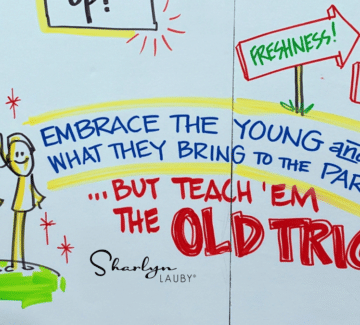 UP!
FRESHNESS!
EMBRACE THE YOUNG and
WHAT THEY BRING TO THE PAR
...BUT TEACH 'EM
THE OLD TRIC
Sharlyn
LAUBY®